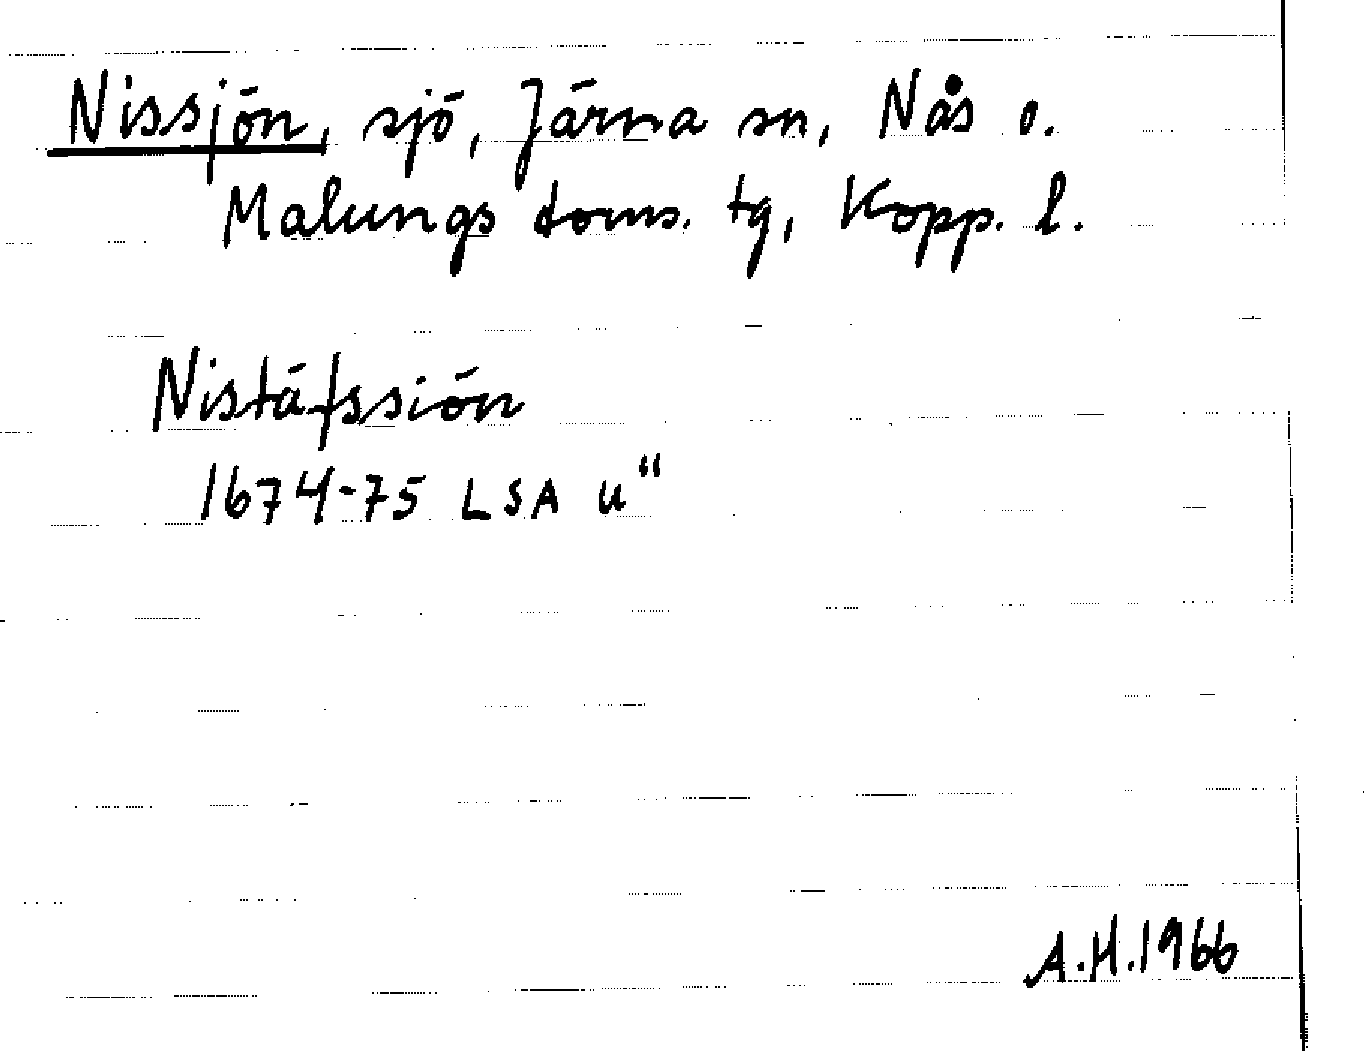 Nissjön, sjö, Järna sn, Nås o.
Malungs doms. tg, Kopp. l.
Nistäfssiön
1674-75 LSA u"
A.H.1966